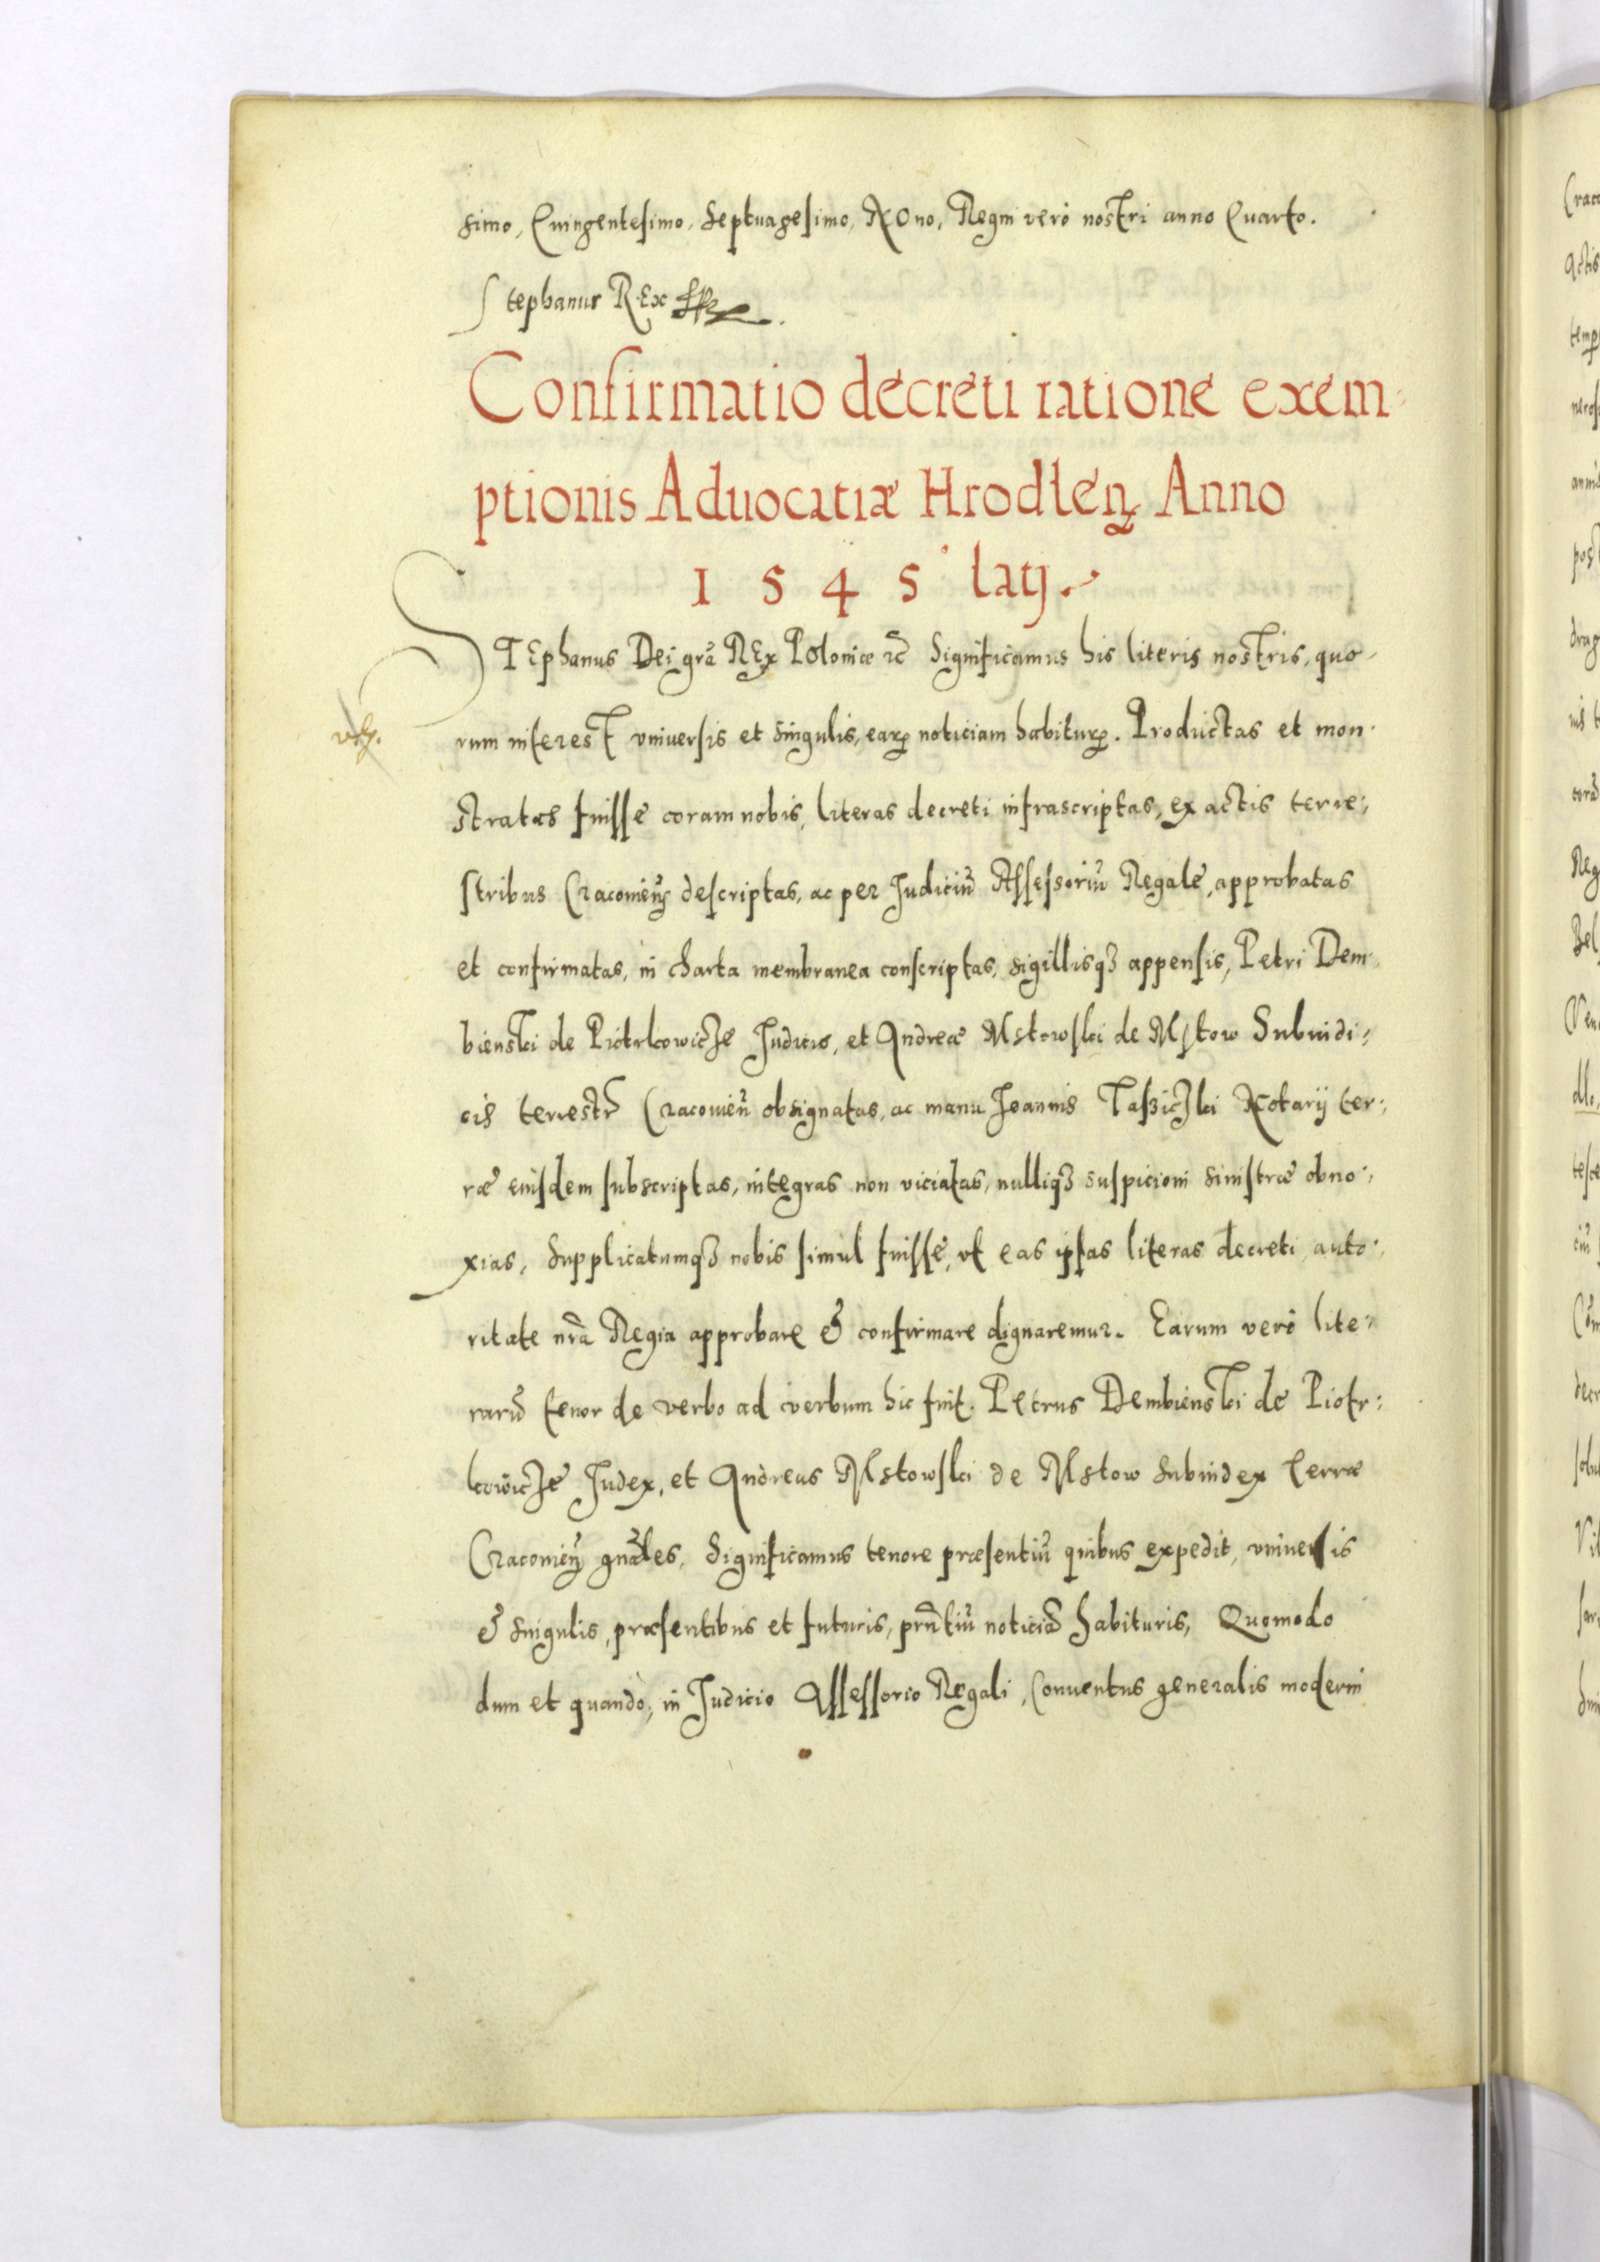 simo, Quingentesimo, Septuagesimo, Nono, Regni verò nostri anno Quarto.
Stephanus REx
Confirmatio decreti ratione exem-
ptionis Aduocatiæ Hrodlen̄ Anno
1545 latj.
STEphanus Dei gr̃a REx Poloniæ ꝛc̃ Significamus his literis nostris, quo-
rum interest vniuersis et singulis, earꝝ noticiam habiturꝝ. Productas et mon-
stratas fuisse coram nobis, literas decreti infrascriptas, ex actis terre-
stribus Cracouien̄ descriptas, ac per Judiciū Assessoriū Regale, approbatas
et confirmatas, in charta membranea conscriptas, sigillisqȝ appensis, Petri Dem-
bienski de Piotrkowicze Judicis, et Andreæ Mstowski de Mstow Subiudi-
cis terrestr̃ Cracouien̄ obsignatas, ac manu Joannis Taßiczki Notarij ter-
ræ eiusdem subscriptas, integras non viciatas, nulliqȝ suspicioni sinistræ obno-
xias, Supplicatumqȝ nobis simul fuisse, vt eas ipsas literas decreti auto-
ritate nr̃a Regia approbare & confirmare dignaremur. Earum verò lite-
rarū tenor de verbo ad verbum hic fuit. Petrus Dembienski de Piotr-
kowicze Judex, et Andreas Mstowski de Mstow Subiudex terræ
Cracouien̄ gnãles, Significamus tenore præsentiū quibus expedit, vniuersis
& singulis, præsentibus et futuris, prñtiū noticiã habituris, Quomodo
dum et quando, in Judicio Assessorio Regali, Conuentus generalis moderni